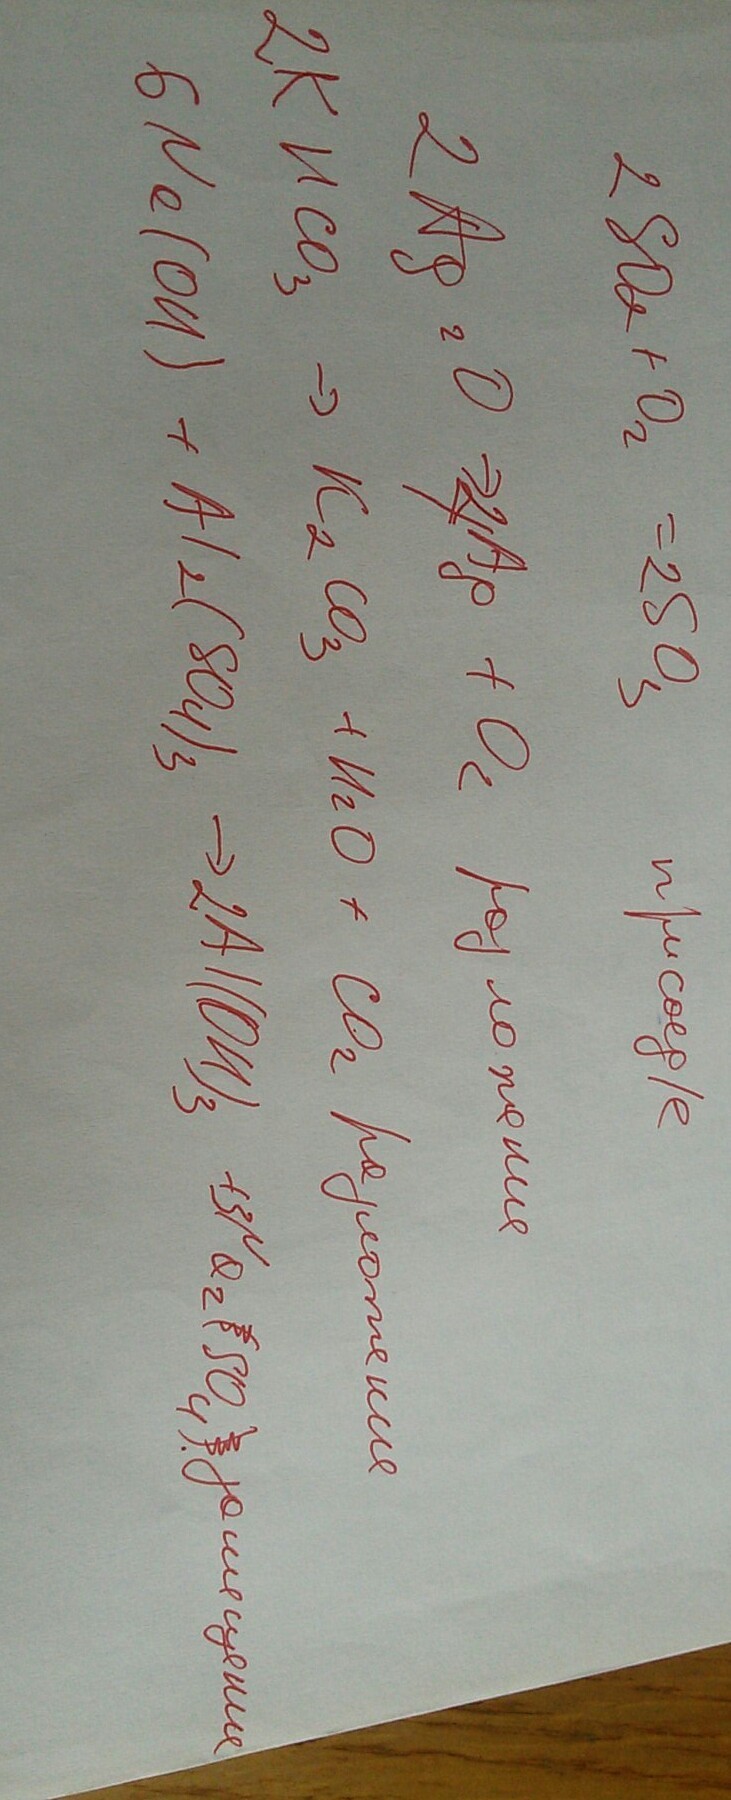 2SO2 + O2 = 2SO3 присоед/е
2Ag2O → 4Ag + O2 разложение
2KHCO3 → K2CO3 + H2O + CO2 разложение
6Na(OH) + Al2(SO4)3 → 2Al(OH)3 + 3Na2SO4. замещение